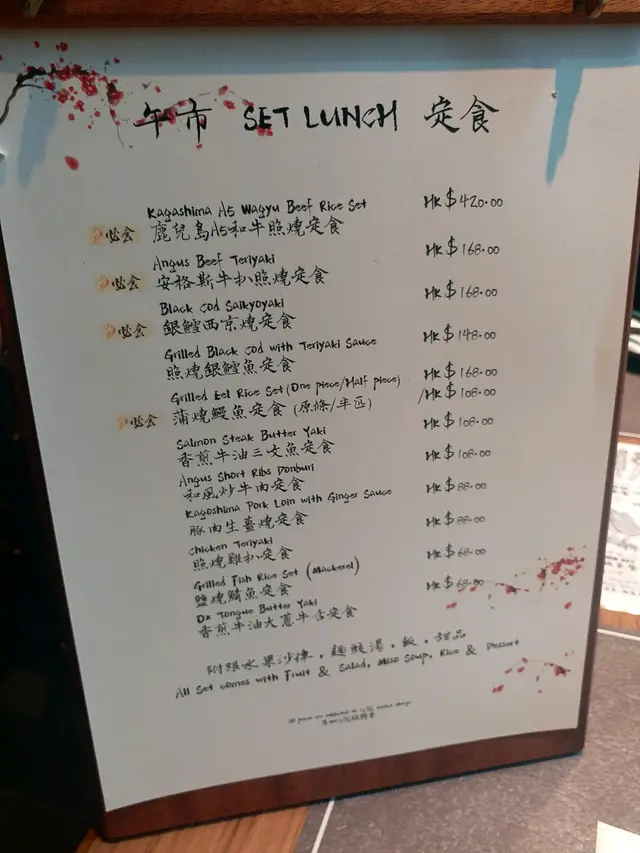 午市 SET LUNCH 定食
Kagashima A5 Wagyu Beef Rice Set HK$420.00
必食 鹿兒島A5和牛照燒定食
Angus Beef Teriyaki HK$168.00
必食 安格斯牛扒照燒定食
Black Cod Saikyoyaki HK$168.00
必食 銀鱈西京燒定食
Grilled Black Cod with Teriyaki Sauce HK$148.00
照燒銀鱈魚定食
Grilled Eel Rice Set (One piece/Half piece) HK$168.00
/HK$108.00
必食 蒲燒鰻魚定食 (原條/半匹)
Salmon Steak Butter Yaki HK$108.00
香煎牛油三文魚定食
Angus Short Ribs Donburi HK$108.00
和風炒牛肉定食
Kagoshima Pork Loin with Ginger Sauce HK$88.00
豚肉生薑燒定食
Chicken Teriyaki HK$88.00
照燒雞扒定食
Grilled Fish Rice Set (Mackerel) HK$68.00
鹽燒鯖魚定食
Ox Tongue Butter Yaki HK$68.00
香煎牛油大蔥牛舌定食
附跟水果沙律，麵豉湯，飯，甜品
All Set comes with Fruit & Salad, Miso Soup, Rice & Dessert
All prices are subjected to 10% service charge